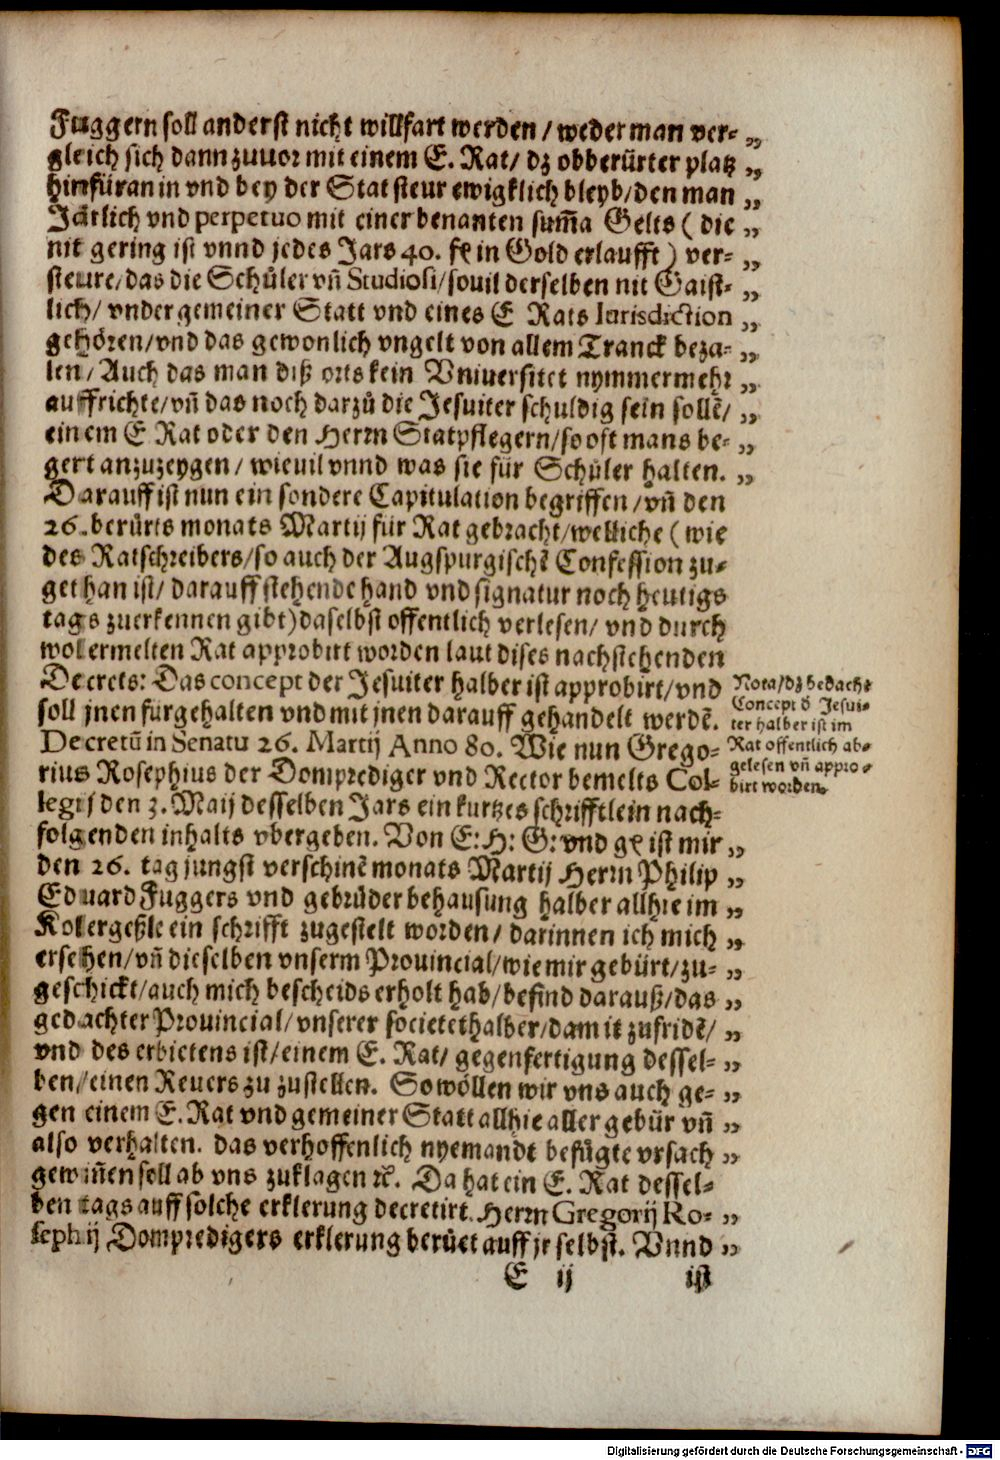 Fuggern soll anderst nicht willfart werden / weder man ver- „
gleich sich dann zuuor mit einem E. Rat / dz obberürter platz „
hinfüran in vnd bey der Stat steur ewigklich bleyb / den man „
Järlich vnd perpetuo mit einer benanten sum̃a Gelts ( die „
nit gering ist vnnd jedes Jars 40. fl in Gold erlaufft ) ver- „
steure / das die Schůler vñ Studiosi / souil derselben nit Gaist- „
lich / vnder gemeiner Statt vnd eines E Rats Iurisdiction „
gehören / vnd das gewonlich vngelt von allem Tranck beza- „
len / Auch das man diß orts kein Vniuersitet nymmermehr „
auffrichte / vñ das noch darzů die Jesuiter schuldig sein sollẽ / „
einem E Rat oder den Herrn Statpflegern / so oft mans be- „
gert anzuzeygen / wieuil vnnd was sie für Schůler halten. „
Darauff ist nun ein sondere Capitulation begriffen / vñ den
26. berůrts monats Martij für Rat gebracht / welliche ( wie
des Ratschreibers / so auch der Augspurgischẽ Confession zu-
gethan ist / darauff stehende hand vnd signatur noch heutigs
tags zuerkennen gibt) daselbst offentlich verlesen / vnd durch
wolermelten Rat approbirt worden laut dises nachstehenden
Decrets: Das concept der Jesuiter halber ist approbirt / vnd
soll jnen fürgehalten vnd mit jnen darauff gehandelt werdẽ.
Decretũ in Senatu 26. Martij Anno 80. Wie nun Grego-
rius Rosephius der Domprediger vnd Rector bemelts Col-
legij den 3. Maij desselben Jars ein kurtzes schrifftlein nach-
folgenden inhalts vbergeben. Von E: H: G: vnd gł ist mir „
den 26. tag jungst verschinẽ monats Martij Herrn Philip „
Eduard Fuggers vnd gebrůder behausung halber allhie im „
Kolergeßle ein schrifft zugestelt worden / darinnen ich mich „
ersehen / vñ dieselben vnserm Prouincial / wie mir gebürt / zu- „
geschickt / auch mich bescheids erholt hab / befind darauß / das „
gedachter Prouincial / vnserer societet halber / damit zufridẽ / „
vnd des erbietens ist / einem E. Rat / gegenfertigung dessel- „
ben / einen Reuers zu zustellen. So wöllen wir vns auch ge- „
gen einem E. Rat vnd gemeiner Statt allhie aller gebür vñ „
also verhalten. das verhoffenlich nyemandt befůgte vrsach „
gewiñen soll ab vns zuklagen ꝛc̃. Da hat ein E. Rat dessel-
ben tags auff solche erklerung decretirt. Herrn Gregorij Ro- „
sephij Dompredigers erklerung berůet auff jr selbst. Vnnd „
E ij ist
Nota / dz bedacht
Concept d̃ Jesui-
ter halber ist im
Rat offentlich ab-
gelesen vñ appro-
birt worden.
Digitalisierung gefördert durch die Deutsche Forschungsgemeinschaft - DFG